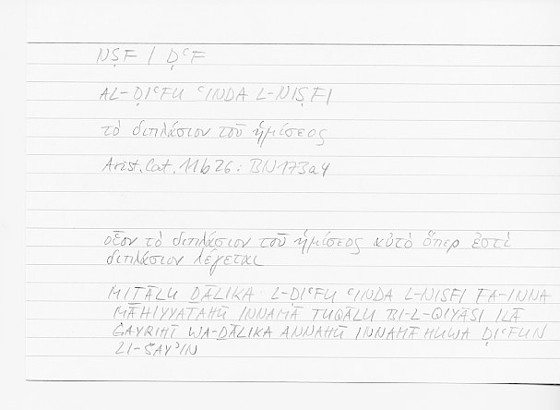 NṢF / ḌʿF
AL-ḌIʿFU ʿINDA L-NIṢFI
τὸ διπλάσιον τοῦ ἡμίσεος
Arist. Cat. 11b26 : BN 173a4
οἷον τὸ διπλάσιον τοῦ ἡμίσεος αὐτὸ ὅπερ ἐστὶ
διπλάσιον λέγεται
MIṮĀLU ḎĀLIKA L-ḌIʿFU ʿINDA L-NIṢFI FA-INNA
MĀHIYYATAHŪ INNAMĀ TUQĀLU BI-L-QIYĀSI ILĀ
ĠAYRIHĪ WA-ḎĀLIKA ANNAHŪ INNAMĀ HUWA ḌIʿFUN
LI-ŠAYʾIN